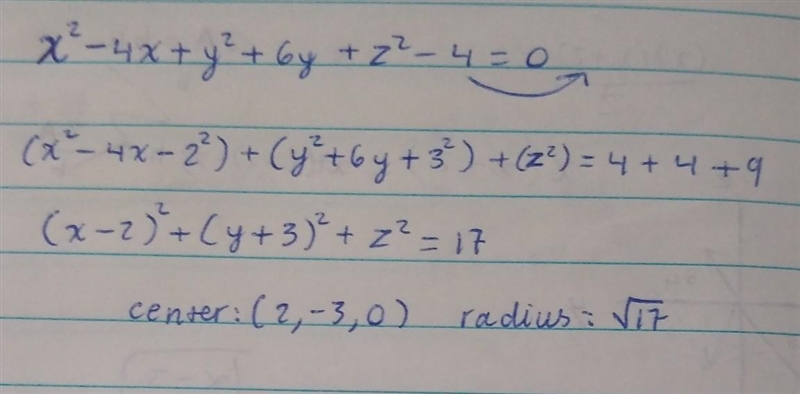 x² - 4x + y² + 6y + z² - 4 = 0
(x² - 4x - 2²) + (y² + 6y + 3²) + (z²) = 4 + 4 + 9
(x - 2)² + (y + 3)² + z² = 17
center: (2, -3, 0) radius: √17